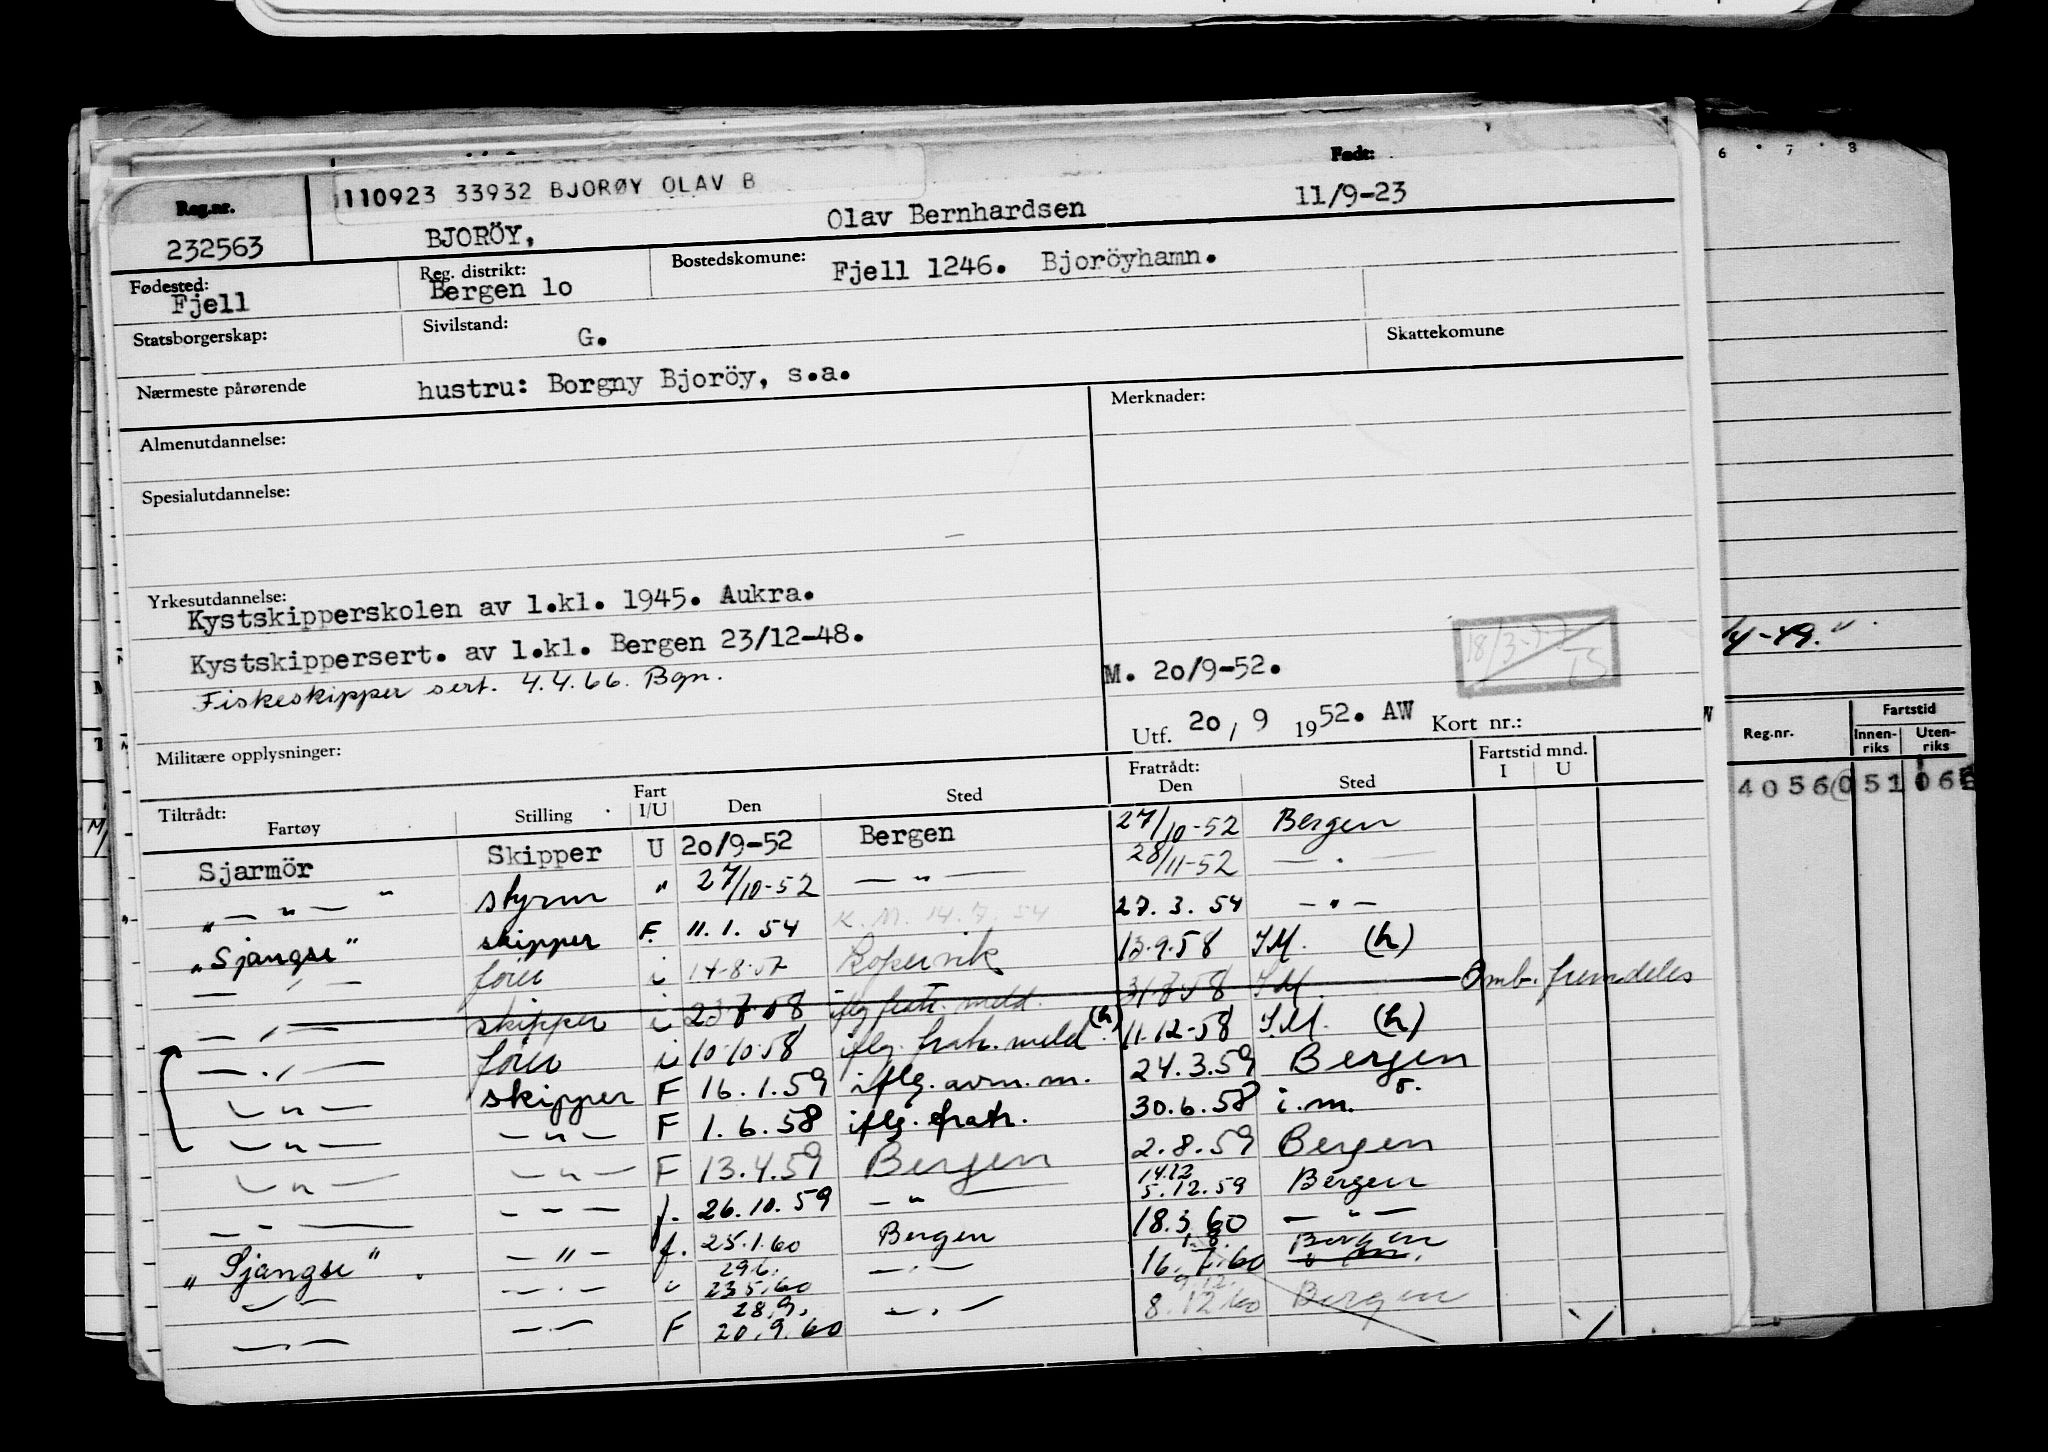 6 . 7 . 8
Født:
110923 33932 BJORØY OLAV B
Reg.nr.
232563
BJORÖY,
Olav Bernhardsen
11/9-23
Fødested:
Fjell
Reg. distrikt:
Bergen lo
Bostedskomune:
Fjell 1246. Bjoröyhamn.
Statsborgerskap:
Sivilstand:
G.
Skattekomune
Nærmeste pårørende
hustru: Borgny Bjoröy, s.a.
Almenutdannelse:
Merknader:
Spesialutdannelse:
Yrkesutdannelse:
Kystskipperskolen av l.kl. 1945. Aukra.
Kystskippersert. av l.kl. Bergen 23/12-48.
Fiskeskipper sert. 4.4.66. Bgn.
M. 20/9-52.
Utf. 20/9 1952. AW Kort nr.:
Militære opplysninger:
Tiltrådt:
Fartøy Stilling Fart I/U Den Sted Fratrådt: Den Sted Fartstid mnd. I U
Sjarmör Skipper U 20/9-52 Bergen 27/10-52 Bergen
" — " — " styrm " 27/10-52 — " — 28/11-52 — " —
"Sjangse" skipper F. 11.1.54 K.M. 14.7.54 27.3.54 — " —
— " — fører i 14-8-57 Kopervik 13.9.58 I.M. (h)
— " — skipper i 23.7.58 iflg fratr. meld. 31.7.58 I.M. Omb. fremdeles
— " — fører i 10.10.58 iflg. fratr. meld (h) 11.12-58 I.M. (h)
— " — skipper F 16.1.59 iflg. avm.m. 24.3.59 Bergen
— " — — " — F 1.6.58 iflg. fratr. 30.6.58 i.m.
— " — — " — F 13.4.59 Bergen 2.8.59 Bergen
— " — — " — f. 26.10.59 — " — 14.12 5.12.59 Bergen
"Sjangse" — " — f. 25.1.60 Bergen 18.3.60 — " —
— " — — " — " 29.6. 23.5.60 — " — 1.8 16.7.60 Bergen
— " — — " — F 28.9. 20.9.60 — " — 9.12. 8.12.60 Bergen
4-49."
Reg.nr. Fartstid
Innenriks Utenriks